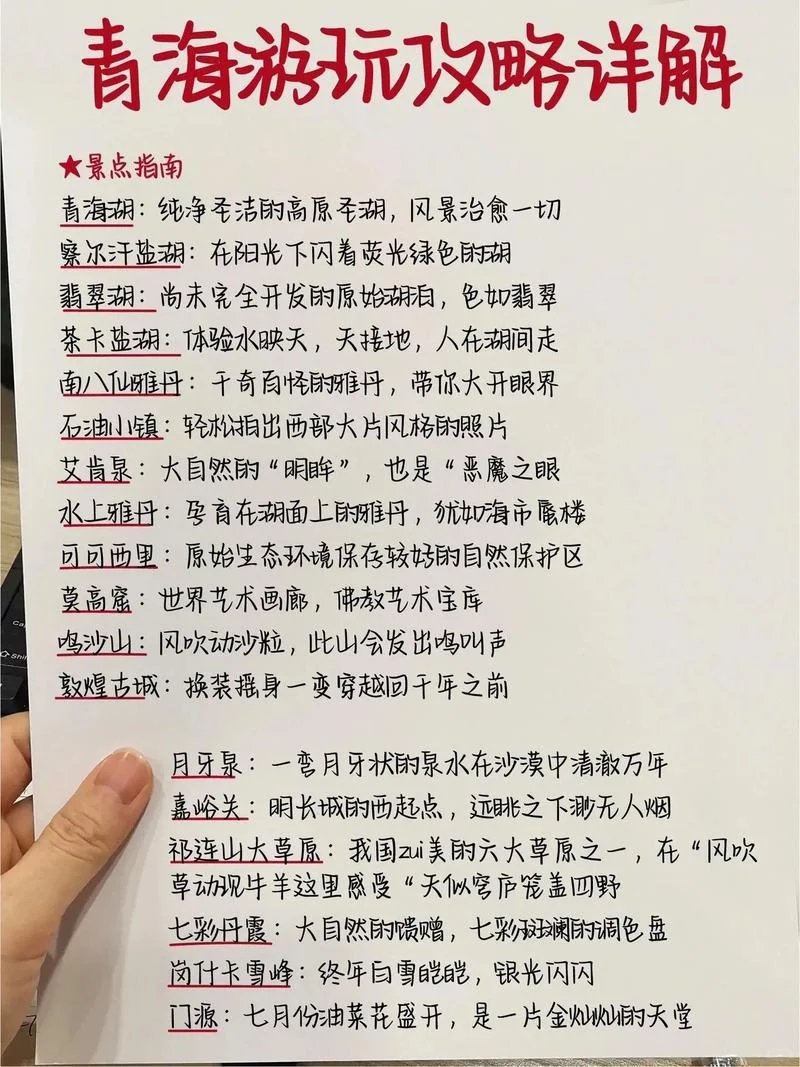 青海游玩攻略详解
★景点指南
青海湖：纯净圣洁的高原圣湖，风景治愈一切
察尔汗盐湖：在阳光下闪着荧光绿色的湖
翡翠湖：尚未完全开发的原始湖泊，色如翡翠
茶卡盐湖：体验水映天，天接地，人在湖间走
南八仙雅丹：千奇百怪的雅丹，带你大开眼界
石油小镇：轻松拍出西部大片风格的照片
艾肯泉：大自然的“明眸”，也是“恶魔之眼
水上雅丹：孕育在湖面上的雅丹，犹如海市蜃楼
可可西里：原始生态环境保存较好的自然保护区
莫高窟：世界艺术画廊，佛教艺术宝库
鸣沙山：风吹动沙粒，此山会发出鸣叫声
敦煌古城：换装摇身一变穿越回千年之前
月牙泉：一弯月牙状的泉水在沙漠中清澈万年
嘉峪关：明长城的西起点，远眺之下渺无人烟
祁连山大草原：我国zui美的六大草原之一，在“风吹
草动现牛羊这里感受“天似穹庐笼盖四野
七彩丹霞：大自然的馈赠，七彩斑斓的调色盘
岗什卡雪峰：终年白雪皑皑，银光闪闪
门源：七月份油菜花盛开，是一片金灿灿的天堂
Shift